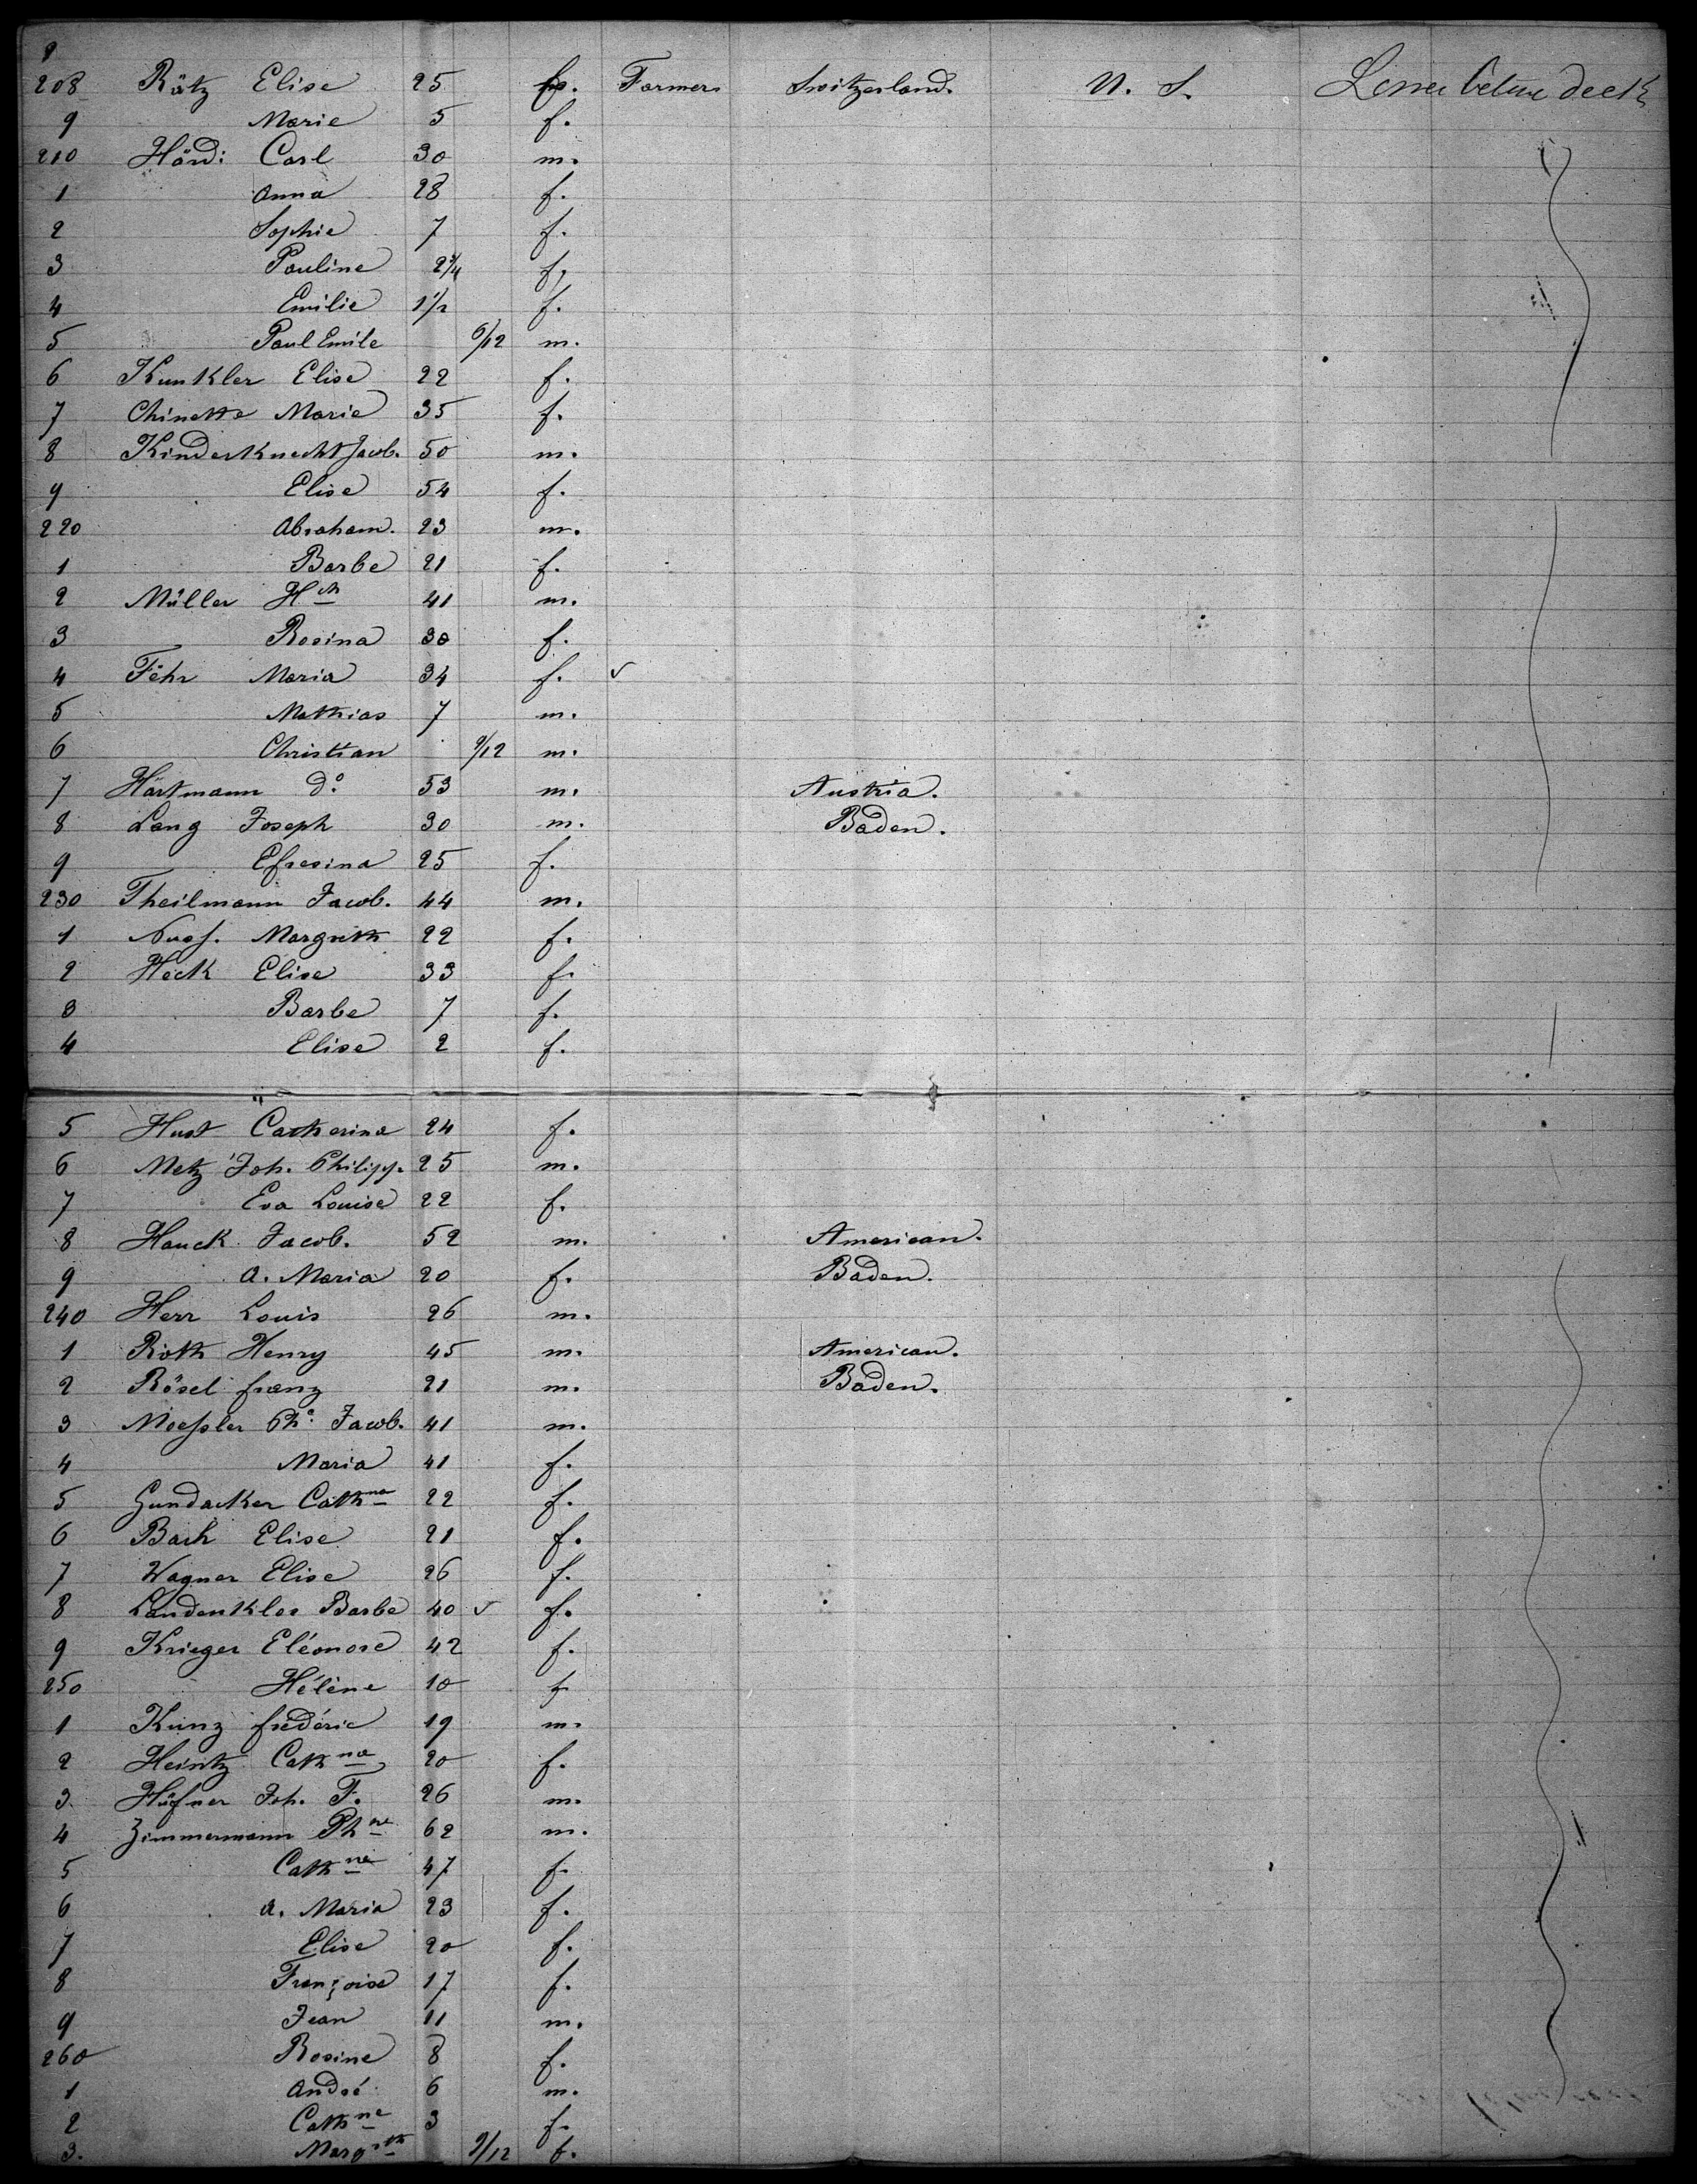 208 Rätz Elise 25 f. Farmer Switzerland. U. S. Lower betwe deck
9 Marie 5 f.
210 Hördi Carl 30 m.
1 Anna 28 f.
2 Sophie 7 f.
3 Pauline 2 3/4 f.
4 Emilie 1 1/2 f.
5 Paul Emile 6/12 m.
6 Kunkler Elise 22 f.
7 Chinette Marie 35 f.
8 Kinderknecht Jacob. 50 m.
9 Elise 54 f.
220 Abraham. 23 m.
1 Barbe 21 f.
2 Müller Hch 41 m.
3 Rosina 30 f.
4 Fehr Maria 34 f. v
5 Mathias 7 m.
6 Christian 9/12 m.
7 Härtmann do 53 m. Austria.
8 Lang Joseph 30 m. Baden.
9 Efresina 25 f.
230 Theilmann Jacob. 44 m.
1 Margrith 22 f.
2 Heck Elise 33 f.
3 Barbe 7 f.
4 Elise 2 f.
5 Hust Catherina 24 f.
6 Metz Joh. Philipp. 25 m.
7 Eva Louise 22 f.
8 Hauck Jacob. 52 m. American.
9 A. Maria 20 f. Baden.
240 Herr Louis 26 m.
1 Roth Henry 45 m. American.
2 Rösel franz 21 m. Baden.
3 Moessler Ph. Jacob. 41 m.
4 Maria 41 f.
5 Gundacker Cathna 22 f.
6 Bach Elise 21 f.
7 Wagner Elise 26 f.
8 Landenklos Barbe 40 v f.
9 Krieger Eléonore 42 f.
250 Hélène 10 f
1 Kunz frédéric 19 m.
2 Heintz Cathna 20 f.
3. Hüfner Joh. F. 26 m.
4 Zimmermann Phne 62 m.
5 Cathne 47 f.
6 A. Maria 23 f.
7 Elise 20 f.
8 Françoise 17 f.
9 Jean 11 m.
260 Rosine 8 f.
1 André 6 m.
2 Cathne 3 f.
3. Margrth 9/12 f.